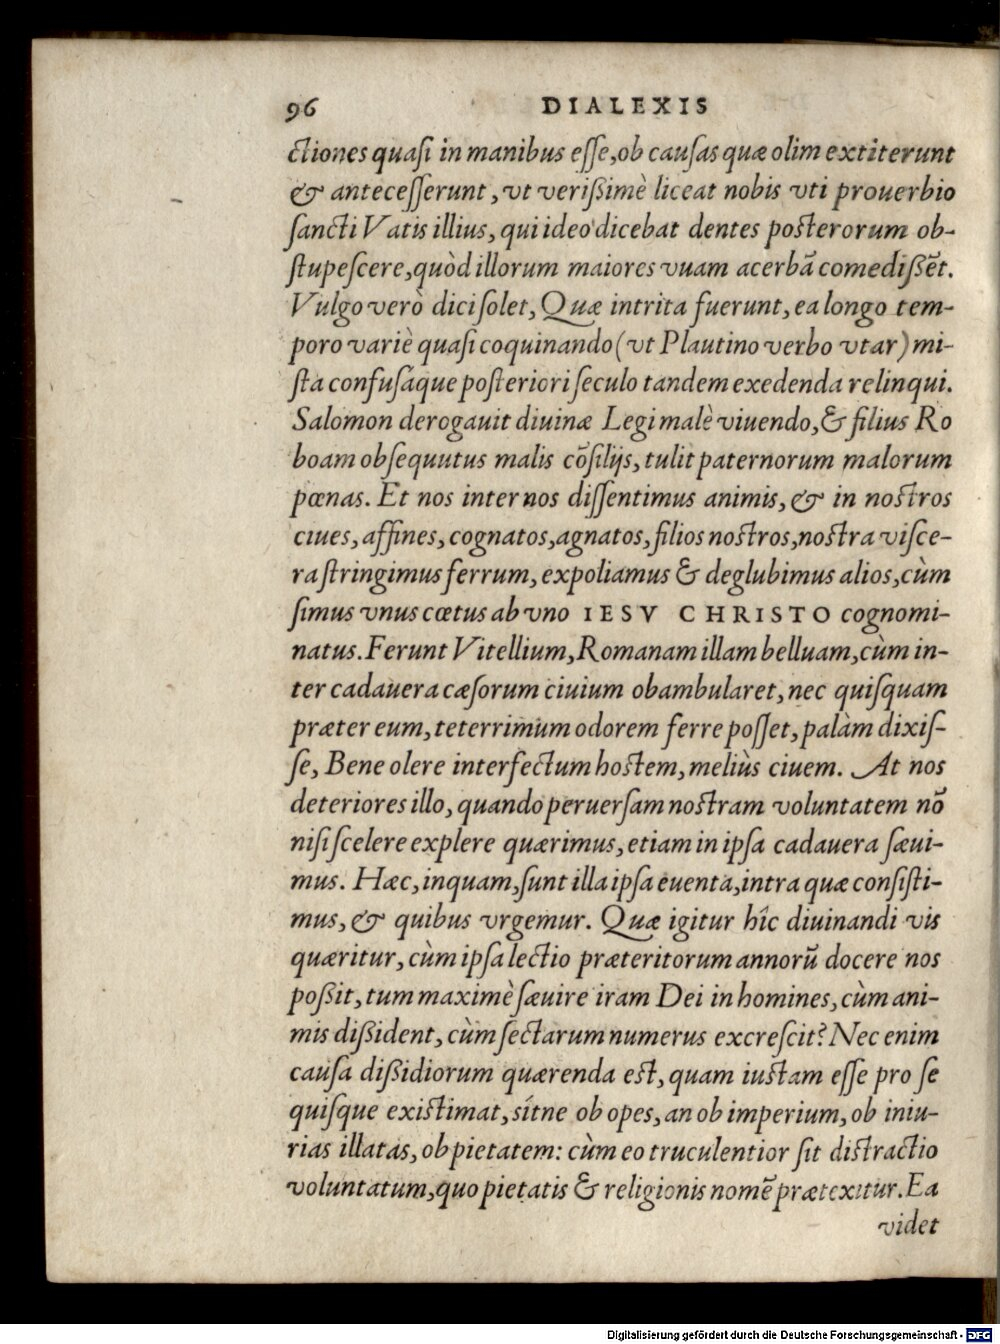 96 DIALEXIS
ctiones quaſi in manibus eſſe, ob cauſas quæ olim extiterunt
& anteceſſerunt, vt verißimè liceat nobis vti prouerbio
ſancti Vatis illius, qui ideo dicebat dentes poſterorum ob-
ſtupeſcere, quòd illorum maiores vuam acerbã comedißẽt.
Vulgo verò dici ſolet, Quæ intrita fuerunt, ea longo tem-
poro variè quaſi coquinando (vt Plautino verbo vtar) mi-
ſta confuſáque poſteriori ſeculo tandem exedenda relinqui.
Salomon derogauit diuinæ Legi malè viuendo, & filius Ro
boam obſequutus malis cõſilijs, tulit paternorum malorum
pœnas. Et nos inter nos diſſentimus animis, & in noſtros
ciues, affines, cognatos, agnatos, filios noſtros, noſtra viſce-
ra ſtringimus ferrum, expoliamus & deglubimus alios, cùm
ſimus vnus cœtus ab vno IESV CHRISTO cognomi-
natus. Ferunt Vitellium, Romanam illam belluam, cùm in-
ter cadauera cæſorum ciuium obambularet, nec quiſquam
præter eum, teterrimum odorem ferre poſſet, palàm dixiſ-
ſe, Bene olere interfectum hoſtem, meliùs ciuem. At nos
deteriores illo, quando peruerſam noſtram voluntatem nõ
niſi ſcelere explere quærimus, etiam in ipſa cadauera ſæui-
mus. Hæc, inquam, ſunt illa ipſa euenta, intra quæ conſiſti-
mus, & quibus vrgemur. Quæ igitur hîc diuinandi vis
quæritur, cùm ipſa lectio præteritorum annorũ docere nos
poßit, tum maximè ſæuire iram Dei in homines, cùm ani-
mis dißident, cùm ſectarum numerus excreſcit? Nec enim
cauſa dißidiorum quærenda eſt, quam iuſtam eſſe pro ſe
quiſque exiſtimat, sítne ob opes, an ob imperium, ob iniu-
rias illatas, ob pietatem: cùm eo truculentior ſit diſtractio
voluntatum, quo pietatis & religionis nomẽ prætexitur. Ea
videt
Digitalisierung gefördert durch die Deutsche Forschungsgemeinschaft - DFG